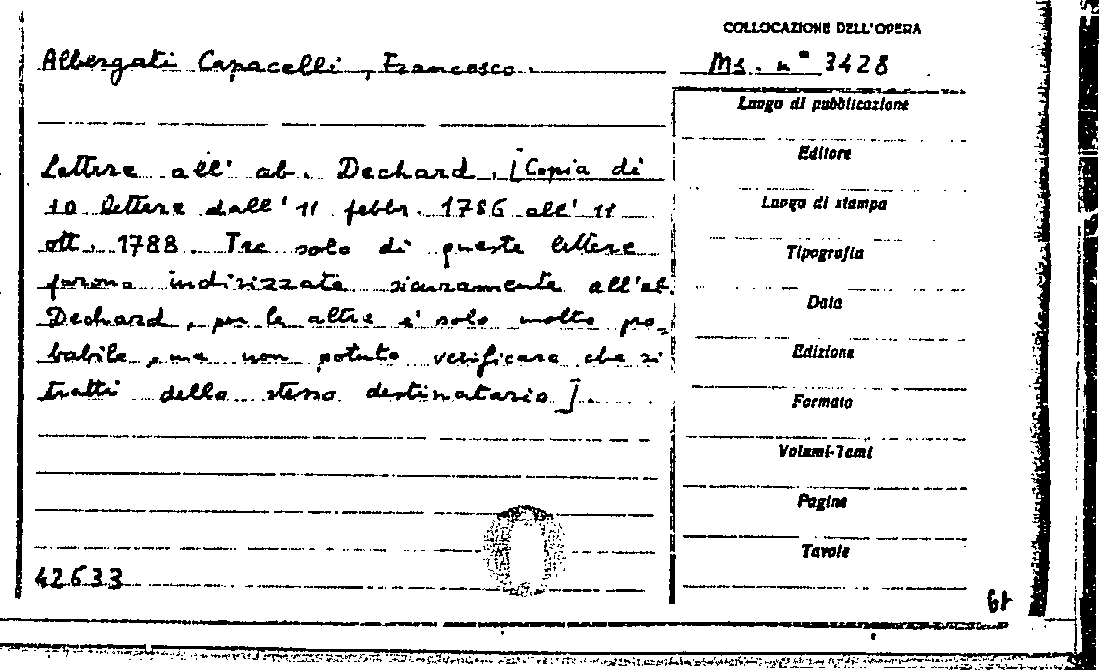 COLLOCAZIONE DELL'OPERA
Albergati Capacelli, Francesco.
Ms. n° 3428
Lettere all' ab. Dechard. [Copia di
10 lettere dall' 11 febbr. 1786 all' 11
ott. 1788. Tre solo di queste lettere
furono indirizzate sicuramente all'ab.
Dechard, per le altre e' solo molto pro-
babile, ma non potuto verificare che si
tratti dello stesso destinatario].
Luogo di pubblicazione
Editore
Luogo di stampa
Tipografia
Data
Edizione
Formato
Volumi-Tomi
Pagine
Tavole
42633